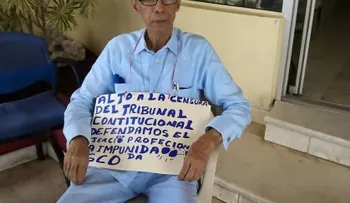 ALTO A LA CENSURA
DEL TRIBUNAL
CONTITUCIONAL
DEFENDAMOS EL
JERCIO PROFECION
A IMPUNIDA
SCO DA